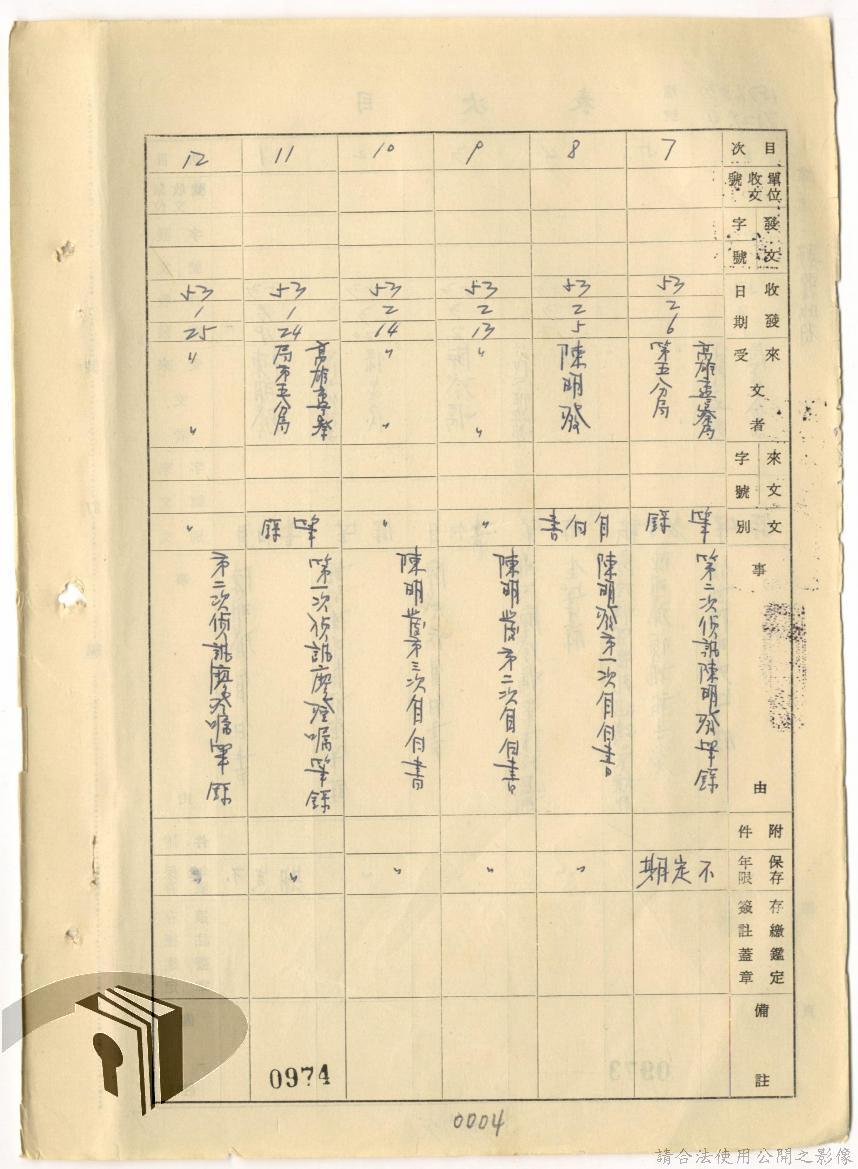 目次
單位收文號
發文字號
收發日期
來受文者
來文字號
文別
事由
附件
保存年限
存繳鑑定簽註蓋章
備註
7
53
2
6
高雄市警察局
第五分局
筆錄
第二次偵訊陳明發筆錄
不定期
8
53
2
5
陳明發
自白書
陳明發第一次自白書
〃
9
53
2
13
〃 〃
〃
陳明發第二次自白書
〃
10
53
2
14
〃 〃
〃
陳明發第三次自白書
〃
11
53
1
24
高雄市警察
局第五分局
筆錄
第一次偵訊廖登囑筆錄
〃
0974
12
53
1
25
〃 〃
〃
第二次偵訊廖登囑筆錄
〃
0004
請合法使用公開之影像